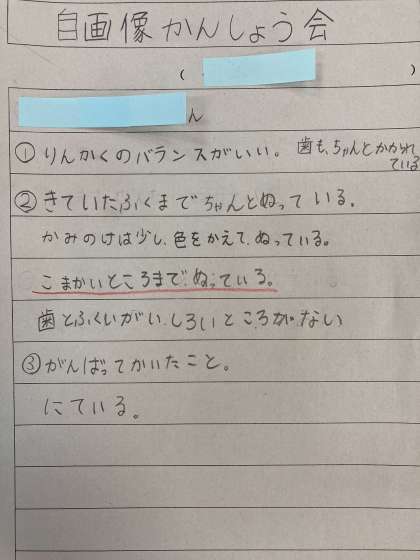 自画像かんしょう会
( )
ん
①りんかくのバランスがいい。 歯も、ちゃんとかかれ
ている
②きていたふくまでちゃんとぬっている。
かみのけは少し、色をかえて、ぬっている。
こまかいところまで、ぬっている。
歯とふくいがい、しろいところが、ない
③がんばってかいたこと。
にている。